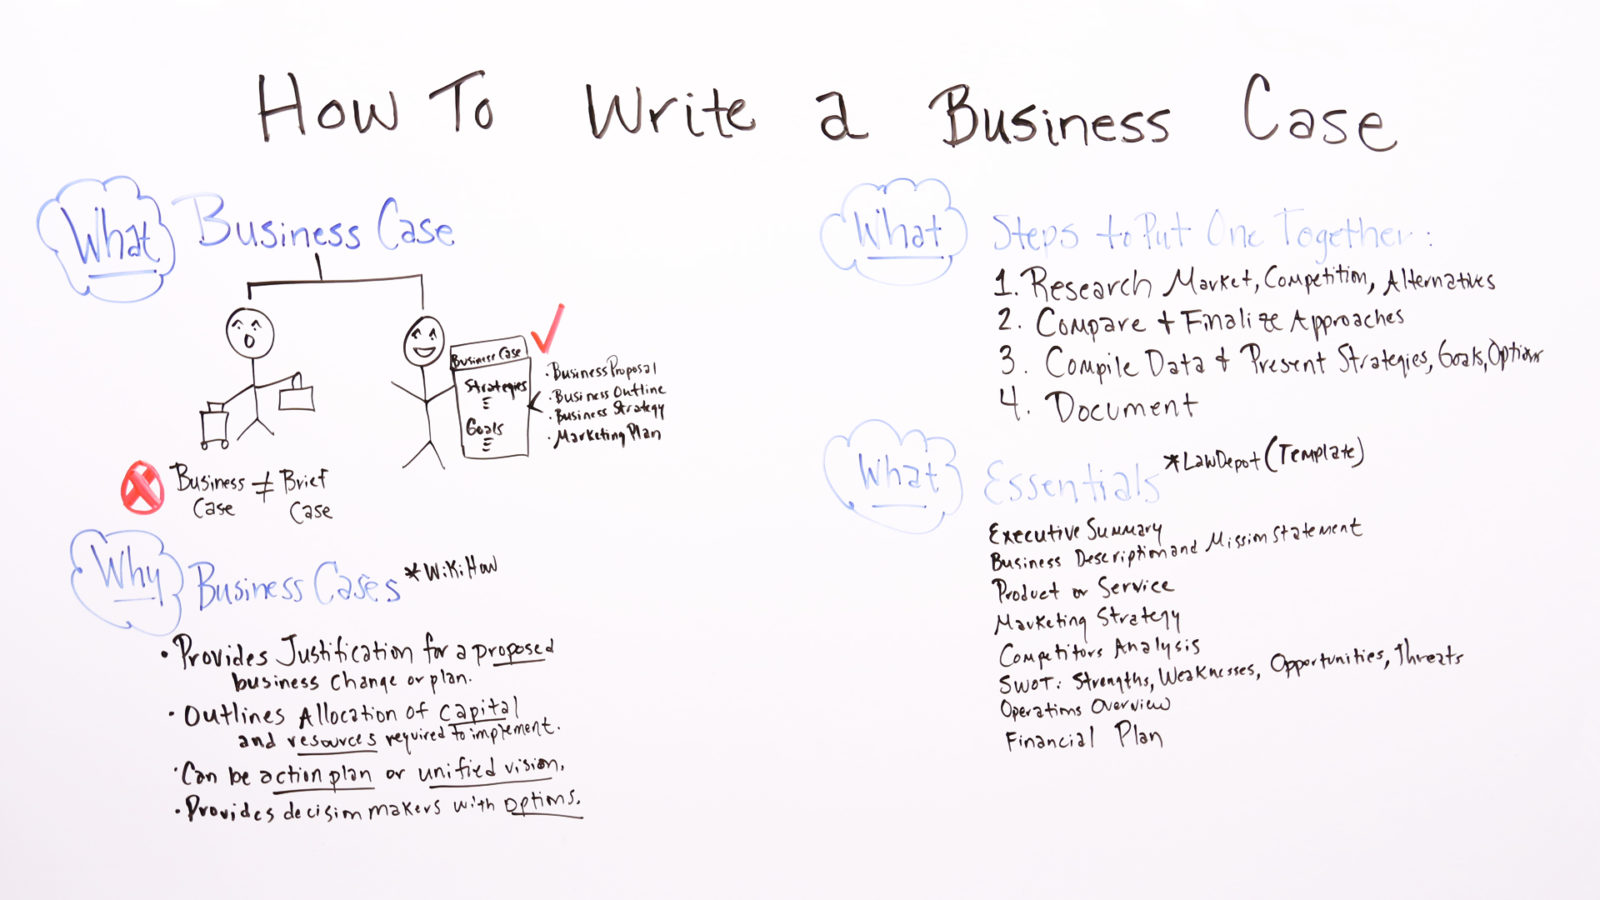 How To Write a Business Case
What Business Case
Business Case
Strategies
Goals
• Business Proposal
• Business Outline
• Business Strategy
• Marketing Plan
Business ≠ Brief
Case Case
Why Business Cases *WikiHow
• Provides Justification for a proposed
business change or plan.
• Outlines Allocation of capital
and resources required to implement.
• Can be action plan or unified vision.
• Provides decision makers with options.
What Steps to Put One Together:
1. Research Market, Competition, Alternatives
2. Compare + Finalize Approaches
3. Compile Data + Present Strategies, Goals, Options
4. Document
What Essentials *LawDepot (Template)
Executive Summary
Business Description and Mission Statement
Product or Service
Marketing Strategy
Competitors Analysis
SWOT: Strengths, Weaknesses, Opportunities, Threats
Operations Overview
Financial Plan